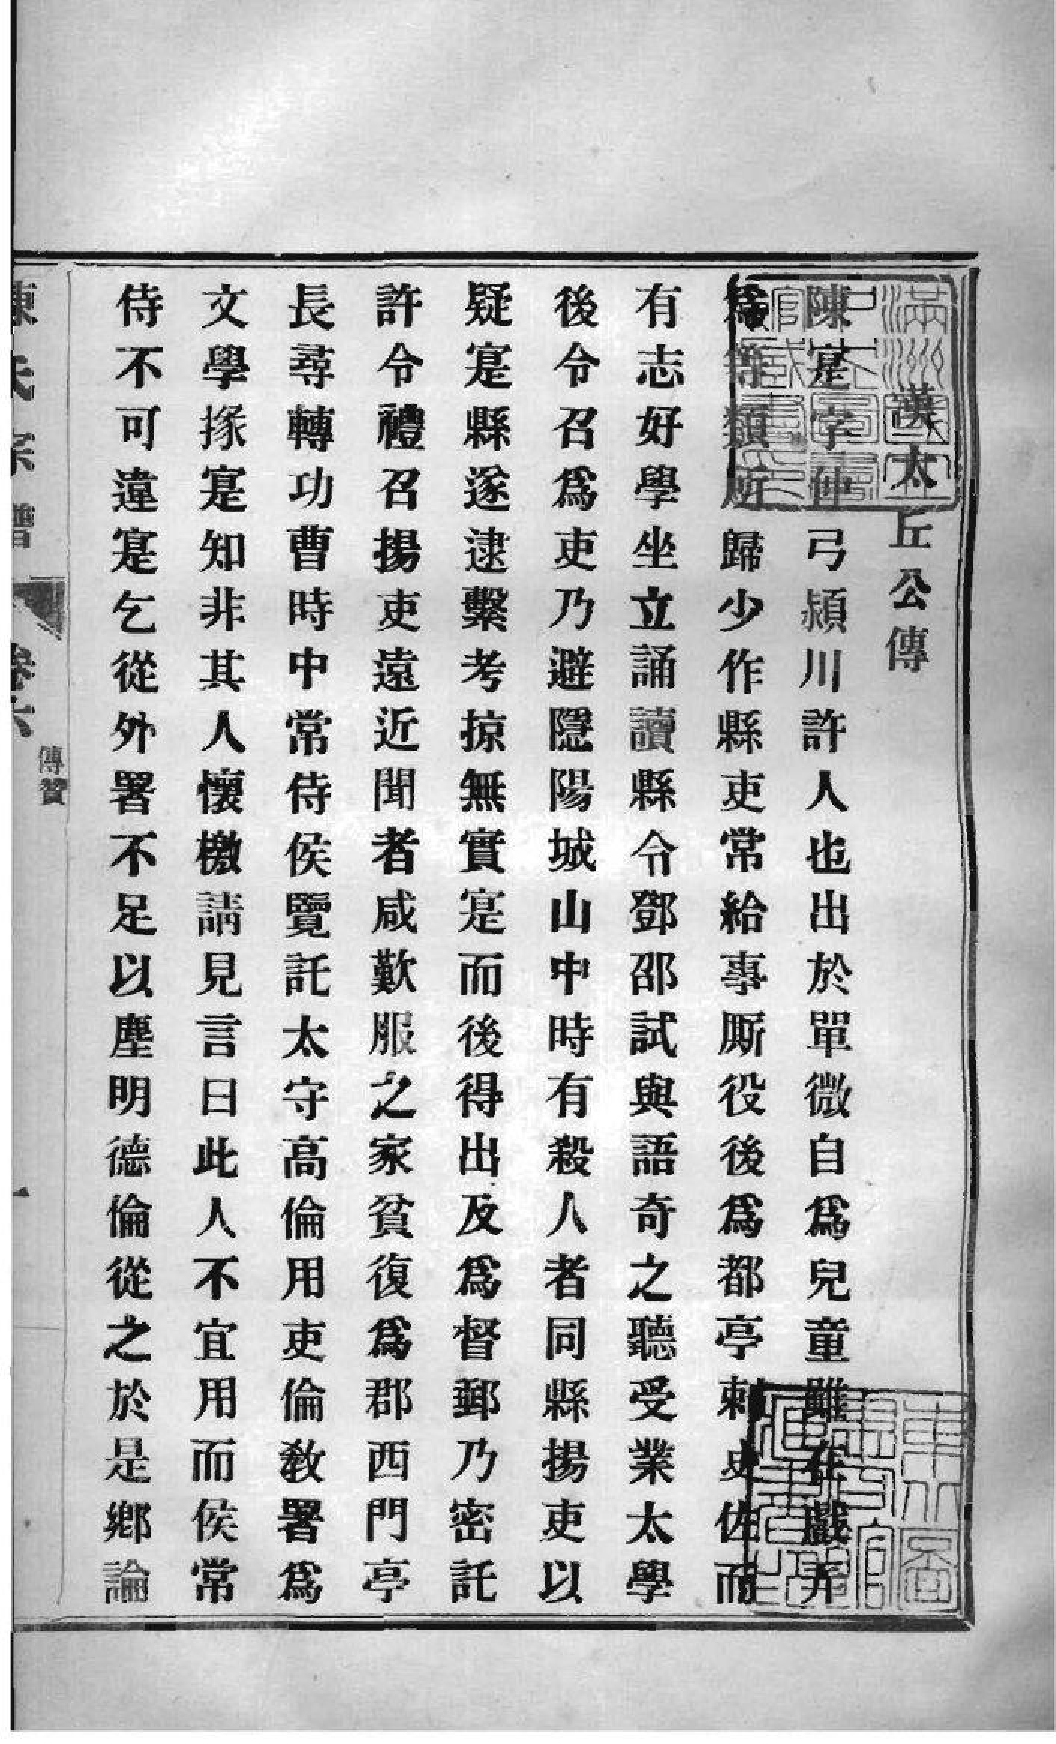 漢太丘公傳
陳寔字仲弓潁川許人也出於單微自爲兒童雖在戲弄
爲等類所歸少作縣吏常給事厮役後爲都亭刺史佐而
有志好學坐立誦讀縣令鄧邵試與語奇之聽受業太學
後令召爲吏乃避隱陽城山中時有殺人者同縣揚吏以
疑寔縣遂逮繫考掠無實寔而後得出及爲督郵乃密託
許令禮召揚吏遠近聞者咸歎服之家貧復爲郡西門亭
長尋轉功曹時中常侍侯覽託太守高倫用吏倫敎署爲
文學掾寔知非其人懷檄請見言曰此人不宜用而侯常
侍不可違寔乞從外署不足以塵明德倫從之於是鄉論
陳氏宗譜
卷六
傳贊
一